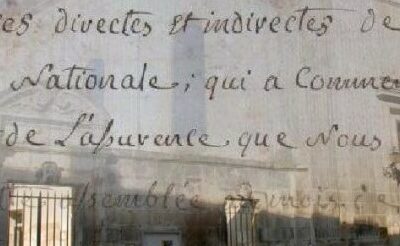 es directes et indirectes de
Nationale; qui a Comme
de L'assurence que Nous
assemblée